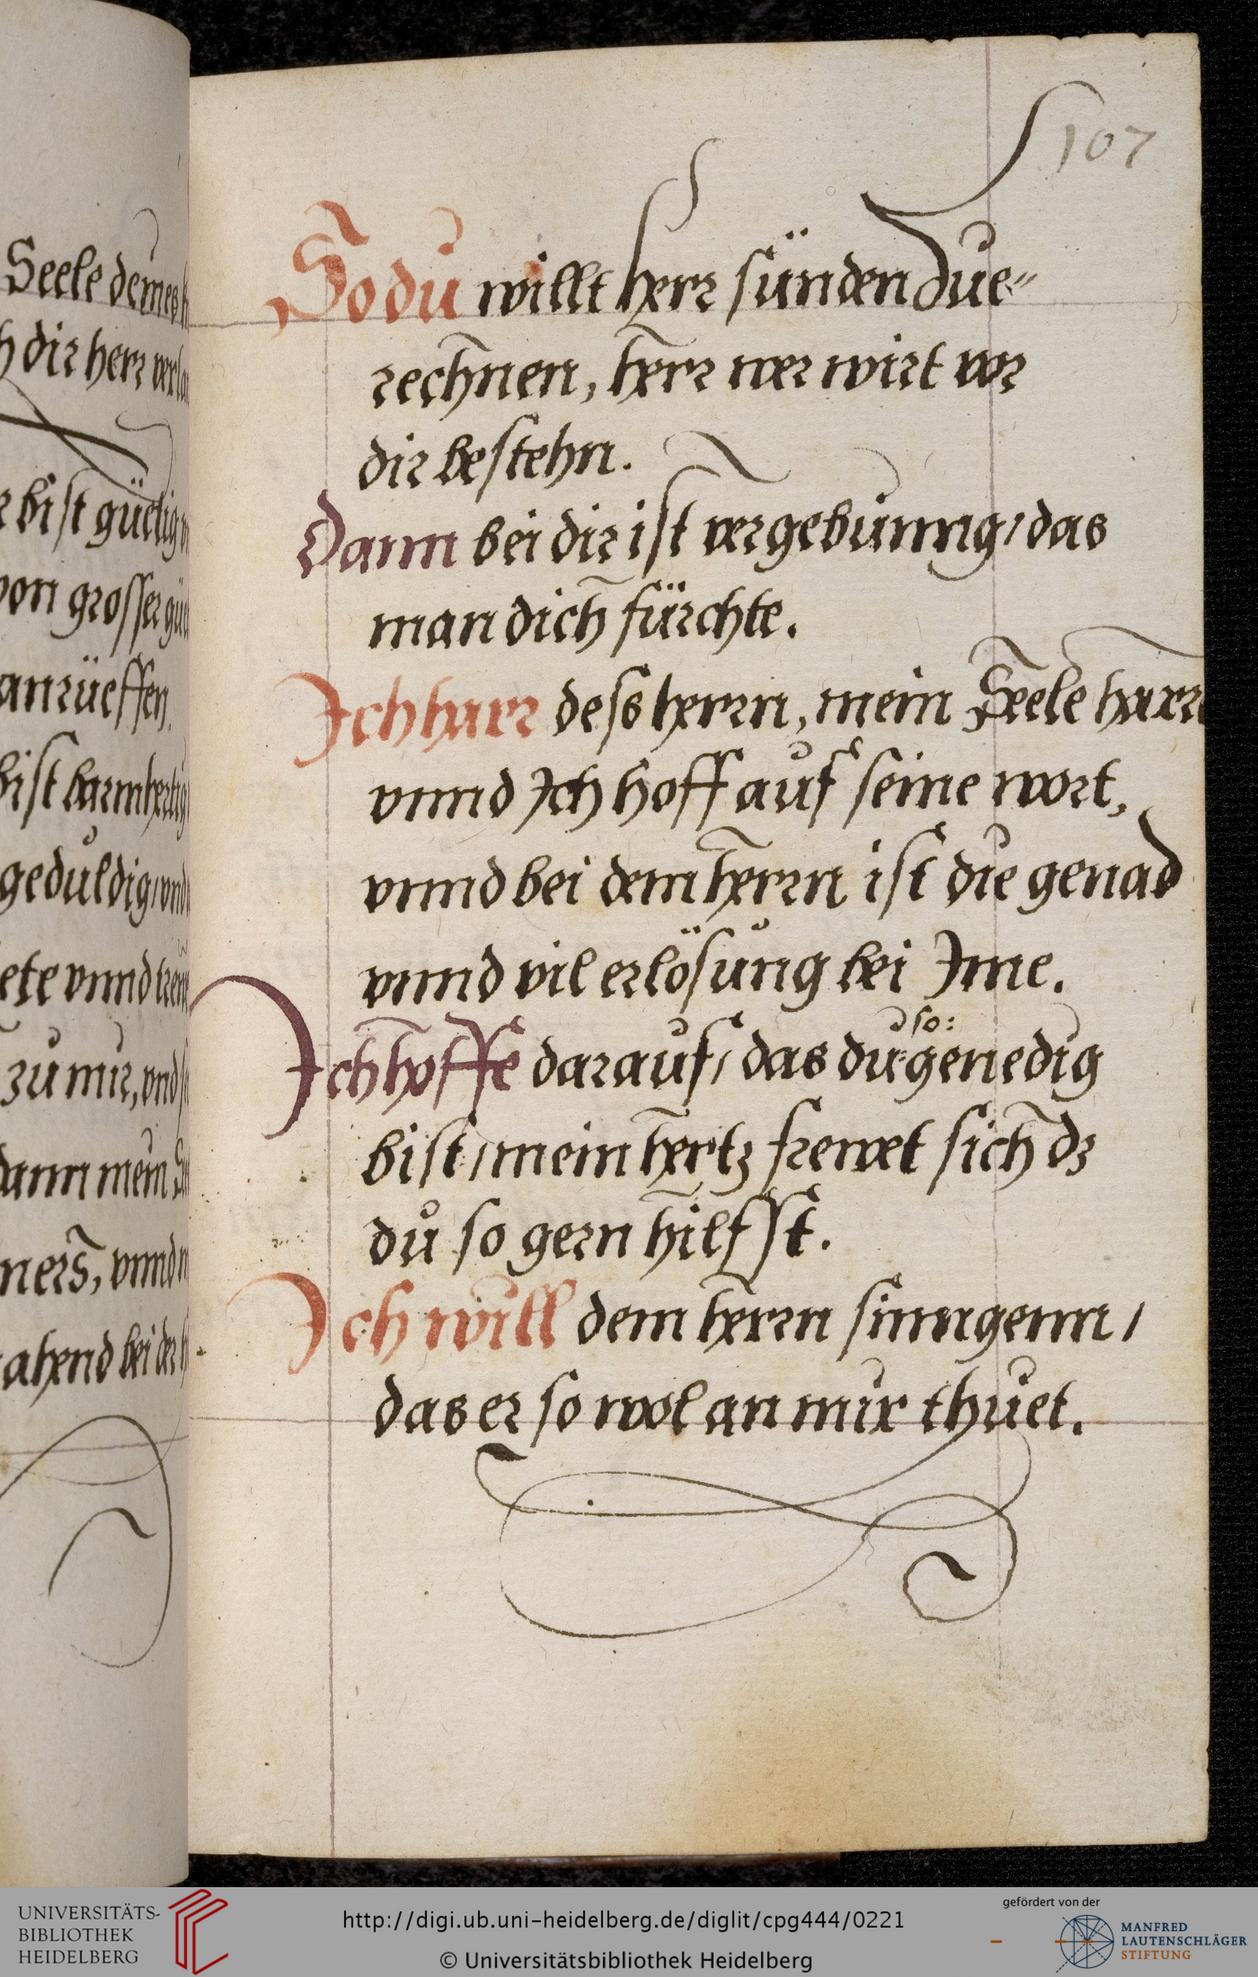 107
So du willt herr sünden Zue-
rechnen, herr wer wirt vor
dir bestehn.
Dann bei dir ist vergebunng/ das
man dich fürchte.
Ich harr dess herrn, mein Seele harre
vnnd Ich hoff auf seine wort,
vnnd bei dem herrn ist die genad
vnnd vil erlösung bei Ime.
so:
Ich hoffe darauf/ das du genedig
bist/ mein hertz frewet sich dz
dů so gern hilfst.
Ich will dem herrn sinngenn/
das er so wol an mir thuet.
Seele deines
dir herr
bist güetig
von grosser
anrüeffen.
bist barmhertzig
geduldig/ vnd
vnnd
zu mir, vnd
dann mein
vnnd
bei der
UNIVERSITÄTS-
BIBLIOTHEK
HEIDELBERG
http://digi.ub.uni-heidelberg.de/diglit/cpg444/0221
© Universitätsbibliothek Heidelberg
gefördert von der
MANFRED
LAUTENSCHLÄGER
STIFTUNG